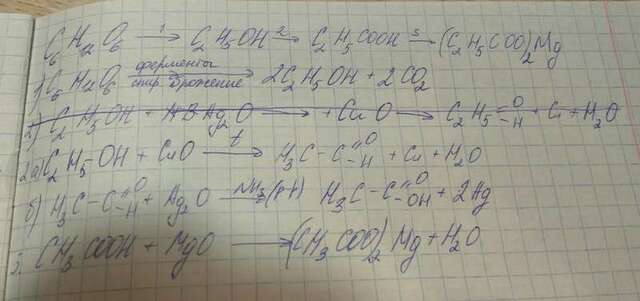 C₆H₁₂O₆ —1→ C₂H₅OH —2→ C₂H₅COOH —3→ (C₂H₅COO)₂Mg
1) C₆H₁₂O₆ —ферменты спирт. брожение→ 2C₂H₅OH + 2CO₂
2) C₂H₅OH + Ag₂O → + CuO → C₂H₅-C=O-H + Cu + H₂O
2а) C₂H₅-OH + CuO —t→ H₃C-C=O-H + Cu + H₂O
б) H₃C-C=O-H + Ag₂O —NH₃(р-р)→ H₃C-C=O-OH + 2Ag
3. CH₃COOH + MgO → (CH₃COO)₂Mg + H₂O